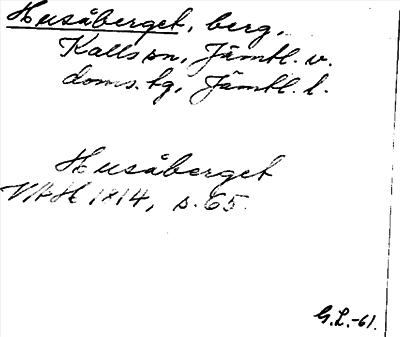 Husåberget, berg,
Kalls sn, Jämtl. v.
doms. tg, Jämtl. l.
Husåberget
VAH 1814, s. 65.
G.L.-61.